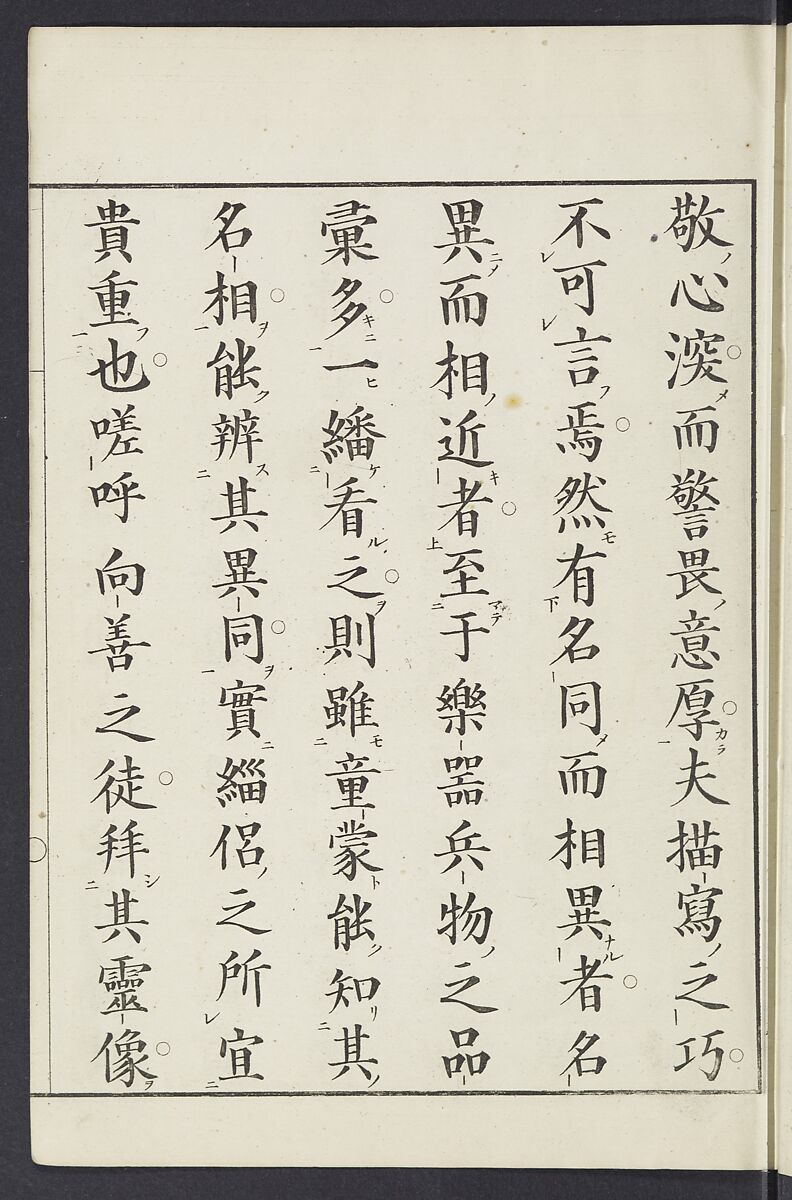 敬心深而警畏意厚夫描寫之巧
不可言焉然有名同而相異者名
異而相近者至于樂器兵物之品
彙多一繙看之則雖童蒙能知其
名相能辨其異同實緇侶之所宜
貴重也嗟呼向善之徒拜其靈像